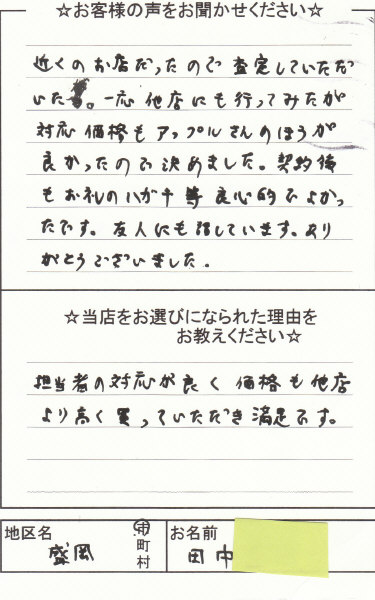 ☆お客様の声をお聞かせください☆
近くのお店だったので査定していただ
いた。一応他店にも行ってみたが
対応価格もアップルさんのほうが
良かったので決めました。契約後
もお礼のハガキ等良心的でよかっ
たです。友人にも話しています。あり
がとうございました.
☆当店をお選びになられた理由を
お教えください☆
担当者の対応が良く価格も他店
より高く買っていただき満足です。
地区名
盛岡
市
町
村
お名前
田中